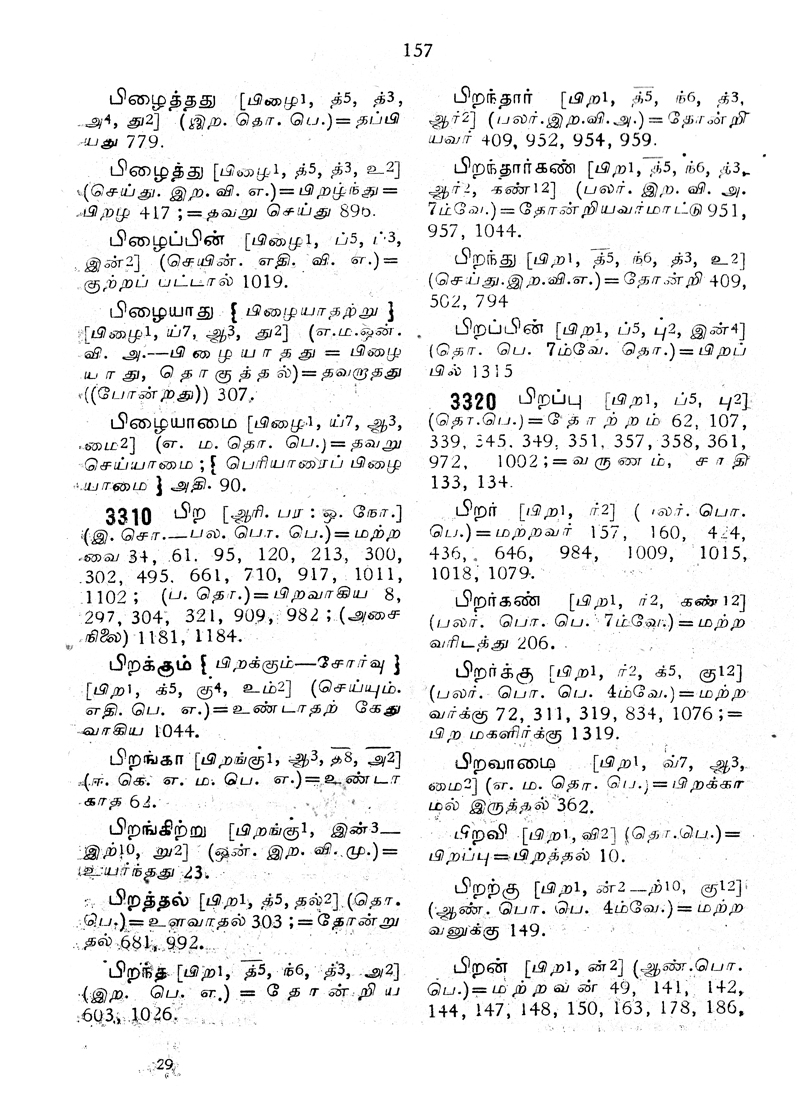 157
பிழைத்தது [பிழை1, த்5, த்3,
அ4, து2] (இற. தொ. பெ.)=தப்பி
யது 779.
பிழைத்து [பிழை1, த்5, த்3, உ2]
(செய்து. இற. வி. எ.)=பிறழ்ந்து=
பிறழ 417 ;=தவறு செய்து 896.
பிழைப்பின் [பிழை1, ப்5, ப்3,
இன்2] (செயின். எதி. வி. எ.)=
குற்றப் பட்டால் 1019.
பிழையாது { பிழையாதற்று }
[பிழை1, ய்7, ஆ3, து2] (எ.ம.ஒன்.
வி. அ.—பிழையாதது = பிழை
யாது, தொகுத்தல்)=தவறாதது
((போன்றது)) 307.
பிழையாமை [பிழை1, ய்7, ஆ3,
மை2] (எ. ம. தொ. பெ.)=தவறு
செய்யாமை ; { பெரியாரைப் பிழை
யாமை } அதி. 90.
3310 பிற [ஆரி. பர : ஒ. நோ.]
(இ. சொ.—பல. பொ. பெ.)=மற்ற
வை 34, 61. 95, 120, 213, 300,
302, 495. 661, 710, 917, 1011,
1102 ; (ப. தொ.)=பிறவாகிய 8,
297, 304, 321, 909, 982 ; (அசை
நிலை) 1181, 1184.
பிறக்கும் { பிறக்கும்—சோர்வு }
[பிற1, க்5, கு4, உம்2] (செய்யும்.
எதி. பெ. எ.)=உண்டாதற் கேது
வாகிய 1044.
பிறங்கா [பிறங்கு1, ஆ3, த8, அ2]
(ஈ. கெ. எ. ம. பெ. எ.)=உண்டா
காத 62.
பிறங்கிற்று [பிறங்கு1, இன்3—
இற்10, று2] (ஒன். இற. வி. மு.)=
உயர்ந்தது 23.
பிறத்தல் [பிற1, த்5, தல்2] (தொ.
பெ.)=உளவாதல் 303 ;=தோன்று
தல் 681, 992.
பிறந்த [பிற1, த்5, ந்6, த்3, அ2]
(இற. பெ. எ.) = தோன்றிய
603, 1026.
29
பிறந்தார் [பிற1, த்5, ந்6, த்3,
ஆர்2] (பலர்.இற.வி.அ.)=தோன்றி
யவர் 409, 952, 954, 959.
பிறந்தார்கண் [பிற1, த்5, ந்6, த்3,
ஆர்2, கண்12] (பலர். இற. வி. அ.
7ம்வே.)=தோன்றியவர்மாட்டு 951,
957, 1044.
பிறந்து [பிற1, த்5, ந்6, த்3, உ2]
(செய்து.இற.வி.எ.)=தோன்றி 409,
502, 794
பிறப்பின் [பிற1, ப்5, பு2, இன்4]
(தொ. பெ. 7ம்வே. தொ.)=பிறப்
பில் 1315
3320 பிறப்பு [பிற1, ப்5, பு2]
(தொ.பெ.)=தோற்றம் 62, 107,
339, 345. 349, 351, 357, 358, 361,
972, 1002 ;=வருணம், சாதி
133, 134.
பிறர் [பிற1, ர்2] (பலர். பொ.
பெ.)=மற்றவர் 157, 160, 424,
436, 646, 984, 1009, 1015,
1018, 1079.
பிறர்கண் [பிற1, ர்2, கண்12]
(பலர். பொ. பெ. 7ம்வே.)=மற்ற
வரிடத்து 206.
பிறர்க்கு [பிற1, ர்2, க்5, கு12]
(பலர். பொ. பெ. 4ம்வே.)=மற்ற
வர்க்கு 72, 311, 319, 834, 1076 ;=
பிற மகளிர்க்கு 1319.
பிறவாமை [பிற1, வ்7, ஆ3,
மை2] (எ. ம. தொ. பெ.)=பிறக்கா
மல் இருத்தல் 362.
பிறவி [பிற1, வி2] (தொ.பெ.)=
பிறப்பு=பிறத்தல் 10.
பிறற்கு [பிற1, ன்2—ற்10, கு12]
(ஆண். பொ. பெ. 4ம்வே.)=மற்ற
வனுக்கு 149.
பிறன் [பிற1, ன்2] (ஆண்.பொ.
பெ.)=மற்றவன் 49, 141, 142,
144, 147, 148, 150, 163, 178, 186,